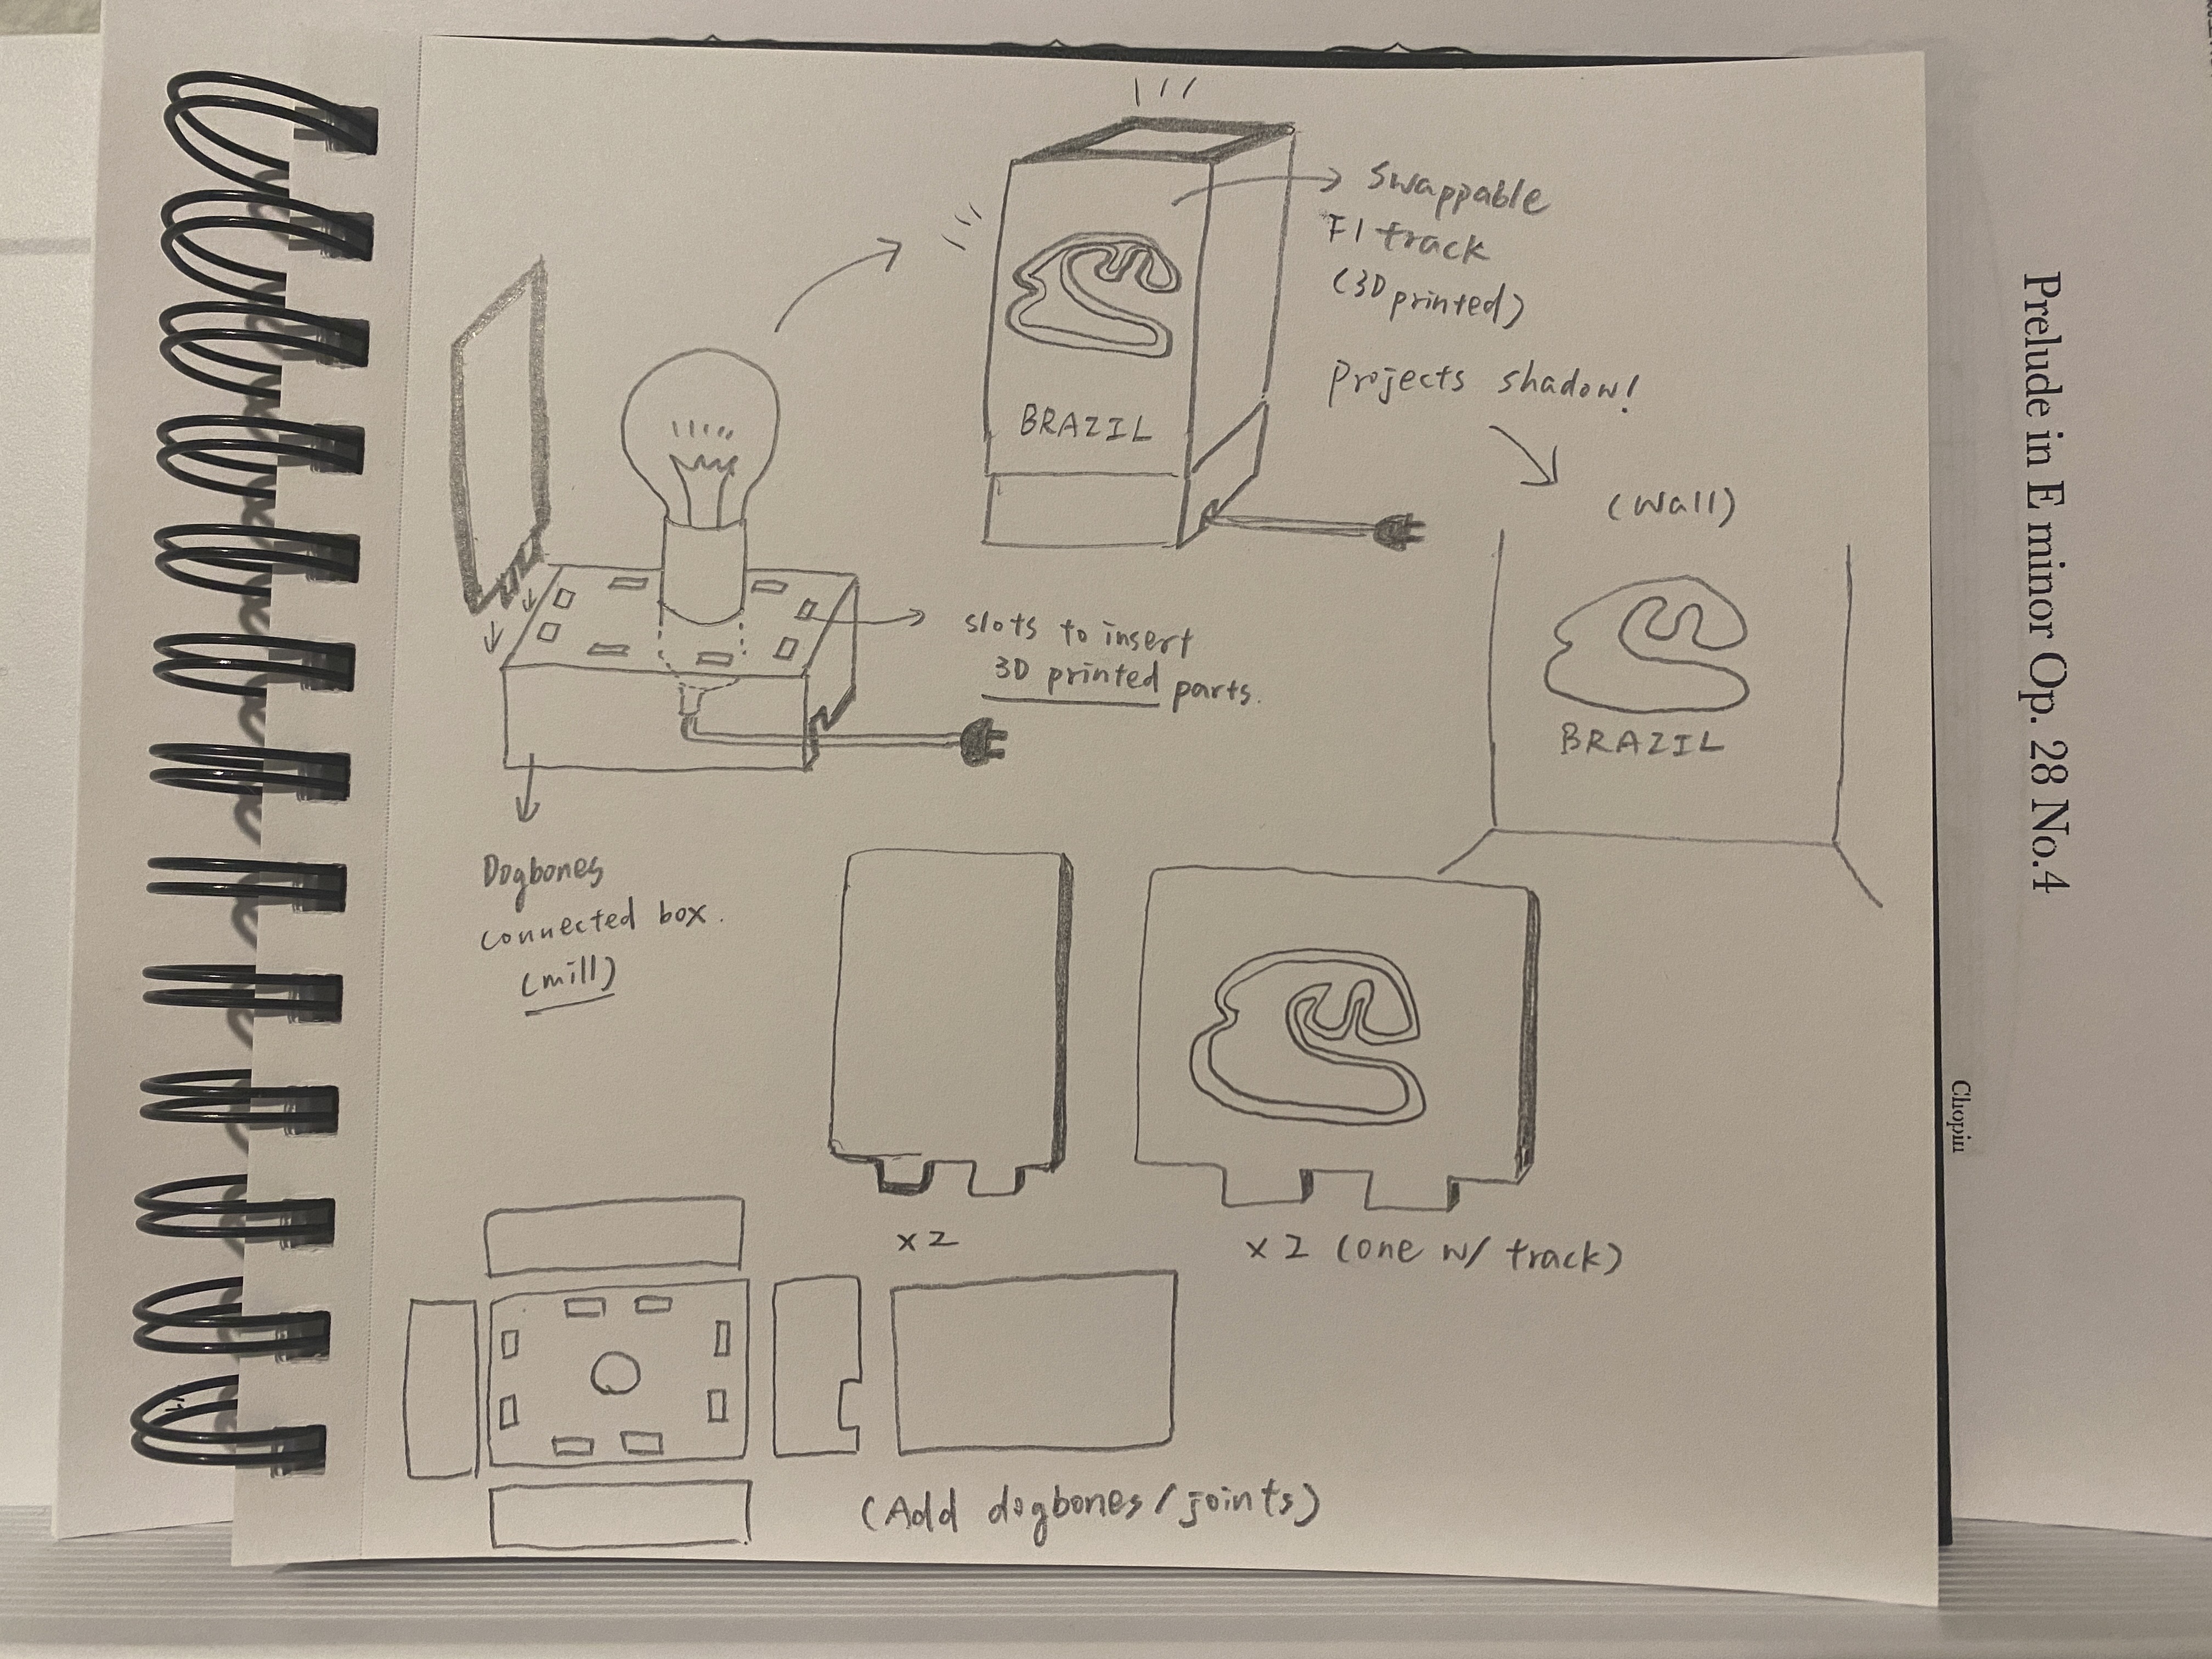 Swappable
F1 track
(3D printed)
Projects shadow!
BRAZIL
(Wall)
BRAZIL
slots to insert
3D printed parts.
Dogbones
connected box.
(mill)
x2
x2 (one w/ track)
(Add dogbones/joints)
Prelude in E minor Op. 28 No.4
Chopin